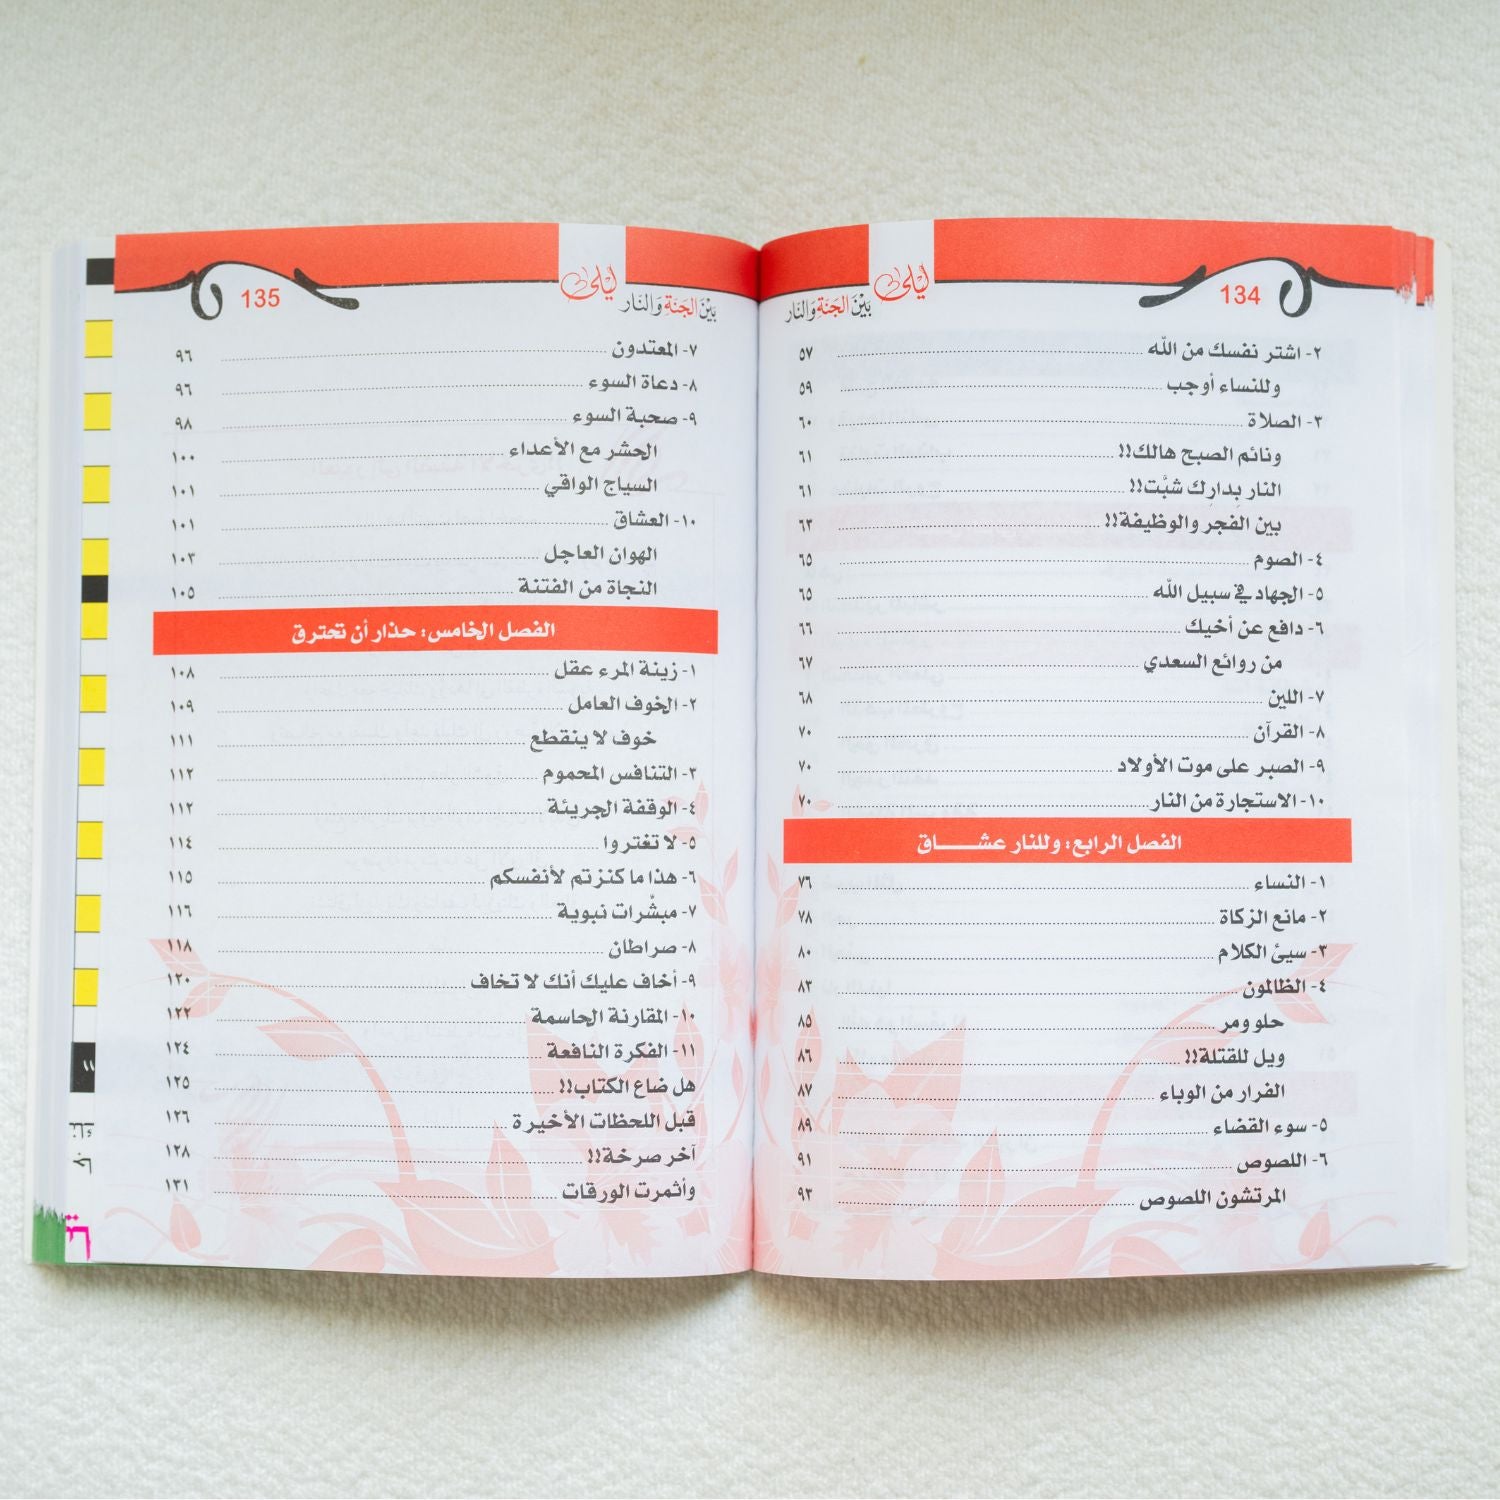 134
ليلى
بين الجنة والنار
٢- اشتر نفسك من الله ٥٧
وللنساء أوجب ٥٩
٣- الصلاة ٦٠
ونائم الصبح هالك!! ٦١
النار بدارك شبَّت!! ٦١
بين الفجر والوظيفة!! ٦٣
٤- الصوم ٦٥
٥- الجهاد في سبيل الله ٦٥
٦- دافع عن أخيك ٦٦
من روائع السعدي ٦٧
٧- اللين ٦٨
٨- القرآن ٧٠
٩- الصبر على موت الأولاد ٧٠
١٠- الاستجارة من النار ٧٠
الفصل الرابع: وللنار عشـــــاق
١- النساء ٧٦
٢- مانع الزكاة ٧٨
٣- سيئ الكلام ٨٠
٤- الظالمون ٨٣
حلو ومر ٨٥
ويل للقتلة!! ٨٦
الفرار من الوباء ٨٧
٥- سوء القضاء ٨٩
٦- اللصوص ٩١
المرتشون اللصوص ٩٣
135
ليلى
بين الجنة والنار
٧- المعتدون ٩٦
٨- دعاة السوء ٩٦
٩- صحبة السوء ٩٨
الحشر مع الأعداء ١٠٠
السياج الواقي ١٠١
١٠- العشاق ١٠١
الهوان العاجل ١٠٣
النجاة من الفتنة ١٠٥
الفصل الخامس: حذار أن تحترق
١- زينة المرء عقل ١٠٨
٢- الخوف العامل ١٠٩
خوف لا ينقطع ١١١
٣- التنافس المحموم ١١٢
٤- الوقفة الجريئة ١١٢
٥- لا تغتروا ١١٤
٦- هذا ما كنزتم لأنفسكم ١١٥
٧- مبشِّرات نبوية ١١٦
٨- صراطان ١١٨
٩- أخاف عليك أنك لا تخاف ١٢٠
١٠- المقارنة الحاسمة ١٢٢
١١- الفكرة النافعة ١٢٤
هل ضاع الكتاب!! ١٢٥
قبل اللحظات الأخيرة ١٢٦
آخر صرخة!! ١٢٨
وأثمرت الورقات ١٣١